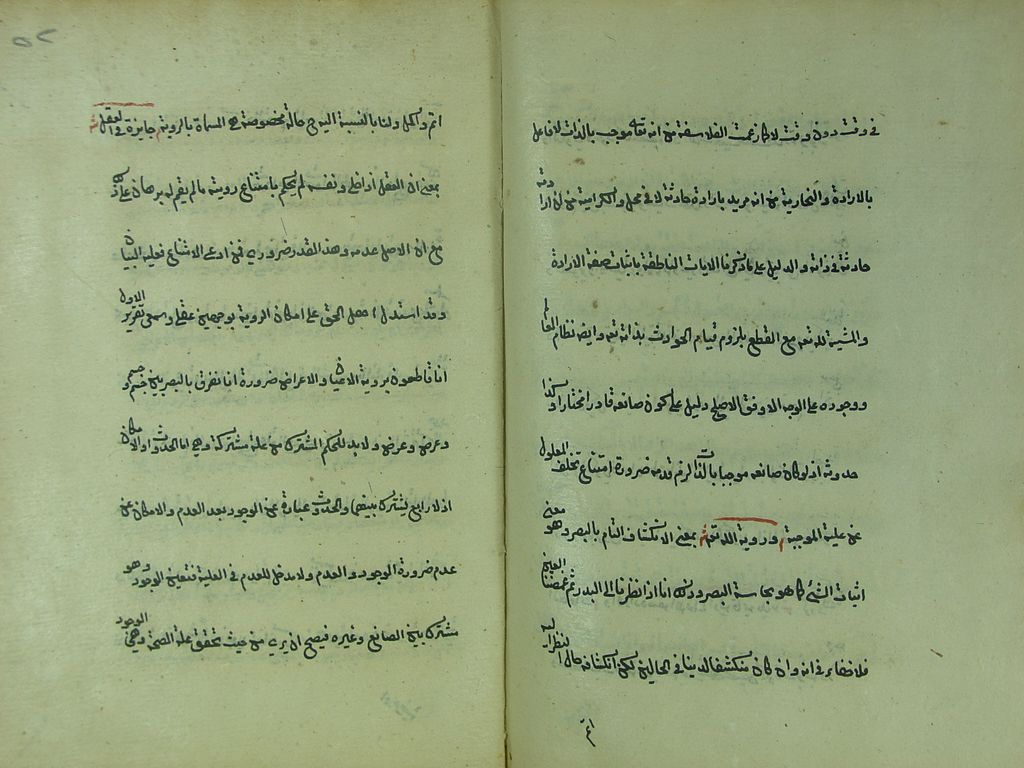 في وقت دون وقت لا كما زعمت الفلاسفة من انه تعالى موجب بالذات لا فاعل
بالارادة والنجارية من انه مريد بارادة حادثة لا في محل والكرامية من ان ارادته
حادثة في ذاته والدليل على ما ذكرنا الايات الناطقة باثبات صفة الارادة
والمشية لله تعه مع القطع بلزوم قيام الحوادث بذاته تعه وايضه نظام العالم
ووجوده على الوجه الاوفق الاصلح دليل على كون صانعه قادرا مختارا وكذا
حدوثه اذ لو كان صانعه موجبا بالذات لزم قدمه ضرورة امتناع تخلف المعلول
عن علية الموجبة ورؤية الله تعه بمعنى الانكشاف التام بالبصر وهو معنى
اثبات الشئ كما هو بحاسة البصر وذلك انا اذا نظرنا الى البدر ثم غمضنا العين
فلا خفاء في انه وان كان منكشفا لدينا في الحالين لكن انكشافه حال النظر اليه
اتم
اتم واكمل ولنا بالنسبة اليه ح حالة مخصوصة هي المسماة بالروية جايزة في العقل
بمعنى ان العقل اذا خلي ونفسه لم يحكم بامتناع رويته ما لم يقم له برهان على ذلك
مع ان الاصل عدمه وهذا القدر ضروري فمن ادعى الامتناع فعليه البيان
وقد استدل اهل الحق على امكان الروية بوجهين عقلي وسمعي تقرير الاول
انا قاطعون بروية الاعيان والاعراض ضرورة انا نفرق بالبصر بين جسم وجسم
وعرض وعرض ولا بد للحكم المشترك من علة مشتركة وهي اما الحدوث او الامكان
اذ لا رابع يشترك بينهما والحدوث عبارة عن الوجود بعد العدم والامكان عن
عدم ضرورة الوجود والعدم ولا مدخل للعدم في العلية فتعين الوجود وهو
مشترك بين الصانع وغيره فيصح ان يرى من حيث تحقق علة الصحة وهي الوجود